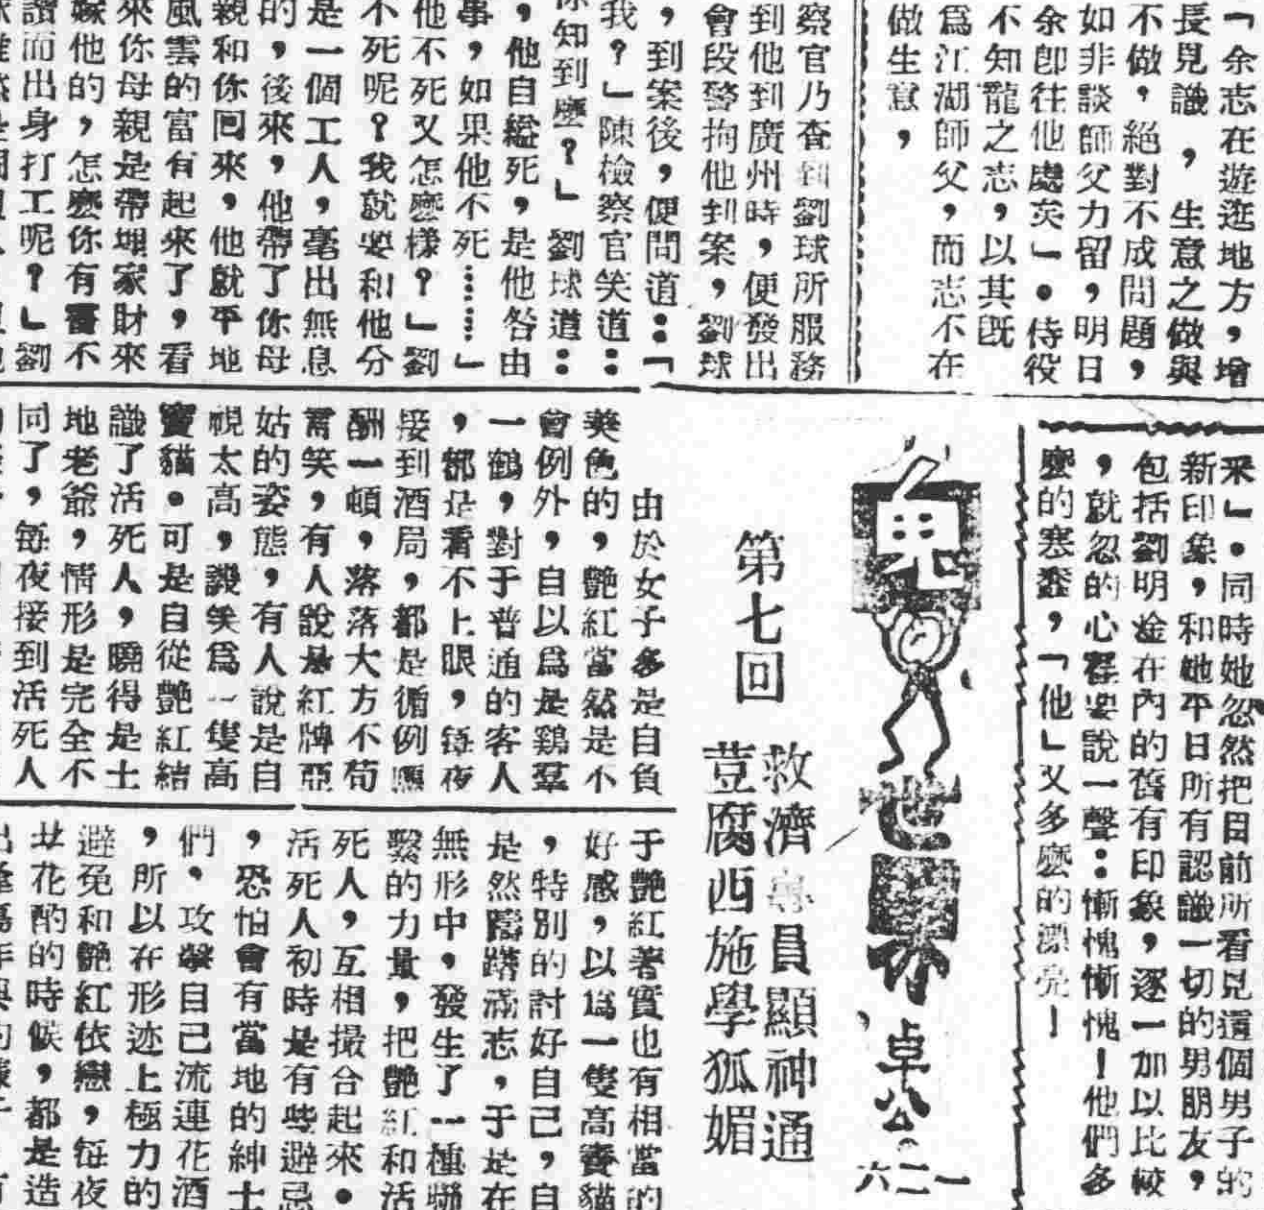 「余志在遊逛地方，增
長見識，生意之做與
不做，絕對不成問題，
如非談師父力留，明日
余卽往他處矣」。侍役
不知龍之志，以其旣
爲江湖師父，而志不在
做生意，
察官乃查到劉球所服務
到他到廣州時，便發出
會段警拘他到案，劉球
，到案後，便問道：「
我？」陳檢察官笑道：
你知到麽？」劉球道：
，他自縊死，是他咎由
事，如果他不死……」
他不死又怎麽樣？」劉
不死呢？我就要和他分
是一個工人，毫出無息
的，後來，他帶了你母
親和你回來，他就平地
風雲的富有起來了，看
來你母親是帶埋家財來
嫁他的，怎麽你有書不
讀而出身打工呢？」劉
釆」。同時她忽然把目前所看見這個男子的
新印象，和她平日所有認識一切的男朋友，
包括劉明淦在內的舊有印象，逐一加以比較
，就忽的心裡要說一聲：慚愧慚愧！他們多
麽的寒，「他」又多麽的漂亮！
鬼世界
卓公
一二六
第七回
救濟專員顯神通
荳腐西施學狐媚
由於女子多是自負
美色的，艷紅當然是不
會例外，自以爲是鷄羣
一鶴，對于普通的客人
，都是看不上眼，每夜
接到酒局，都是循例應
酬一頓，落落大方不苟
言笑，有人說是紅牌亞
姑的姿態，有人說是自
視太高，譏笑爲一隻高
竇貓。可是自從艷紅結
識了活死人，曉得是土
地老爺，情形是完全不
同了，每夜接到活死人
于艷紅著實也有相當的
好感，以爲一隻高竇貓
，特別的討好自己，自
是然躊躇滿志，于是在
無形中，發生了一種聯
繫的力量，把艷紅和活
死人，互相撮合起來。
活死人初時是有些避忌
，恐怕會有當地的紳士
們，攻擊自己流連花酒
，所以在形迹上極力的
避免和艷紅依戀，每夜
花酌的時候，都是造